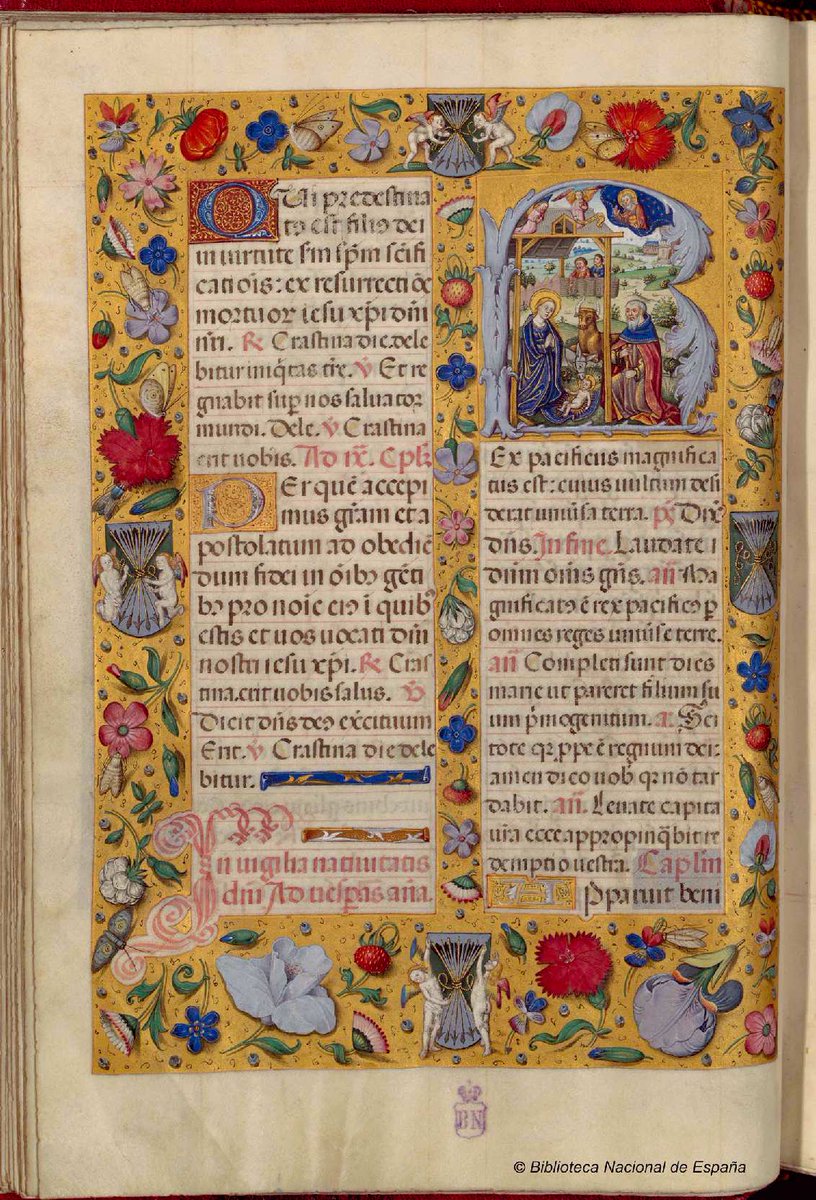 QUi predestina
tus est filius dei
in virtute sm spm scifi
cationis: ex resurrectiõe
mortuor iesu xpi dñi
nri. R Crastina die dele
bitur iniqtas tre. V Et re
gnabit sup nos salvator
mundi. Dele. V Crastina
erit vobis. Ad ix. Cplm
PEr quẽ accepi
mus grãm et a
postolatum ad obediẽ
dum fidei in oibus gẽti
bus pro noie eius ĩ quibus
estis et vos vocati dñi
nostri iesu xpi. R Cras
tina. erit vobis salus. V
Dicit dñs deus exercituum
Erit. V Crastina die dele
bitur.
In vigilia nativitatis
dñi Ad vesperas aña.
REx pacificus magnifica
tus est: cuius vultum desi
derat universa terra. ps Dixit
dñs. In fine. Laudate
dñm omnes gentes. añ Ma
gnificatus ẽ rex pacificus sup
omnes reges universe terre.
añ Completi sunt dies
marie ut pareret filium su
um primogenitum. a. Sci
tote qr prope ẽ regnum dei:
amen dico vobis qr nõ tar
dabit. añ. Levate capita
vestra ecce appropinqbit re
demptio vestra. Caplm
APparuit beni
BN
© Biblioteca Nacional de España